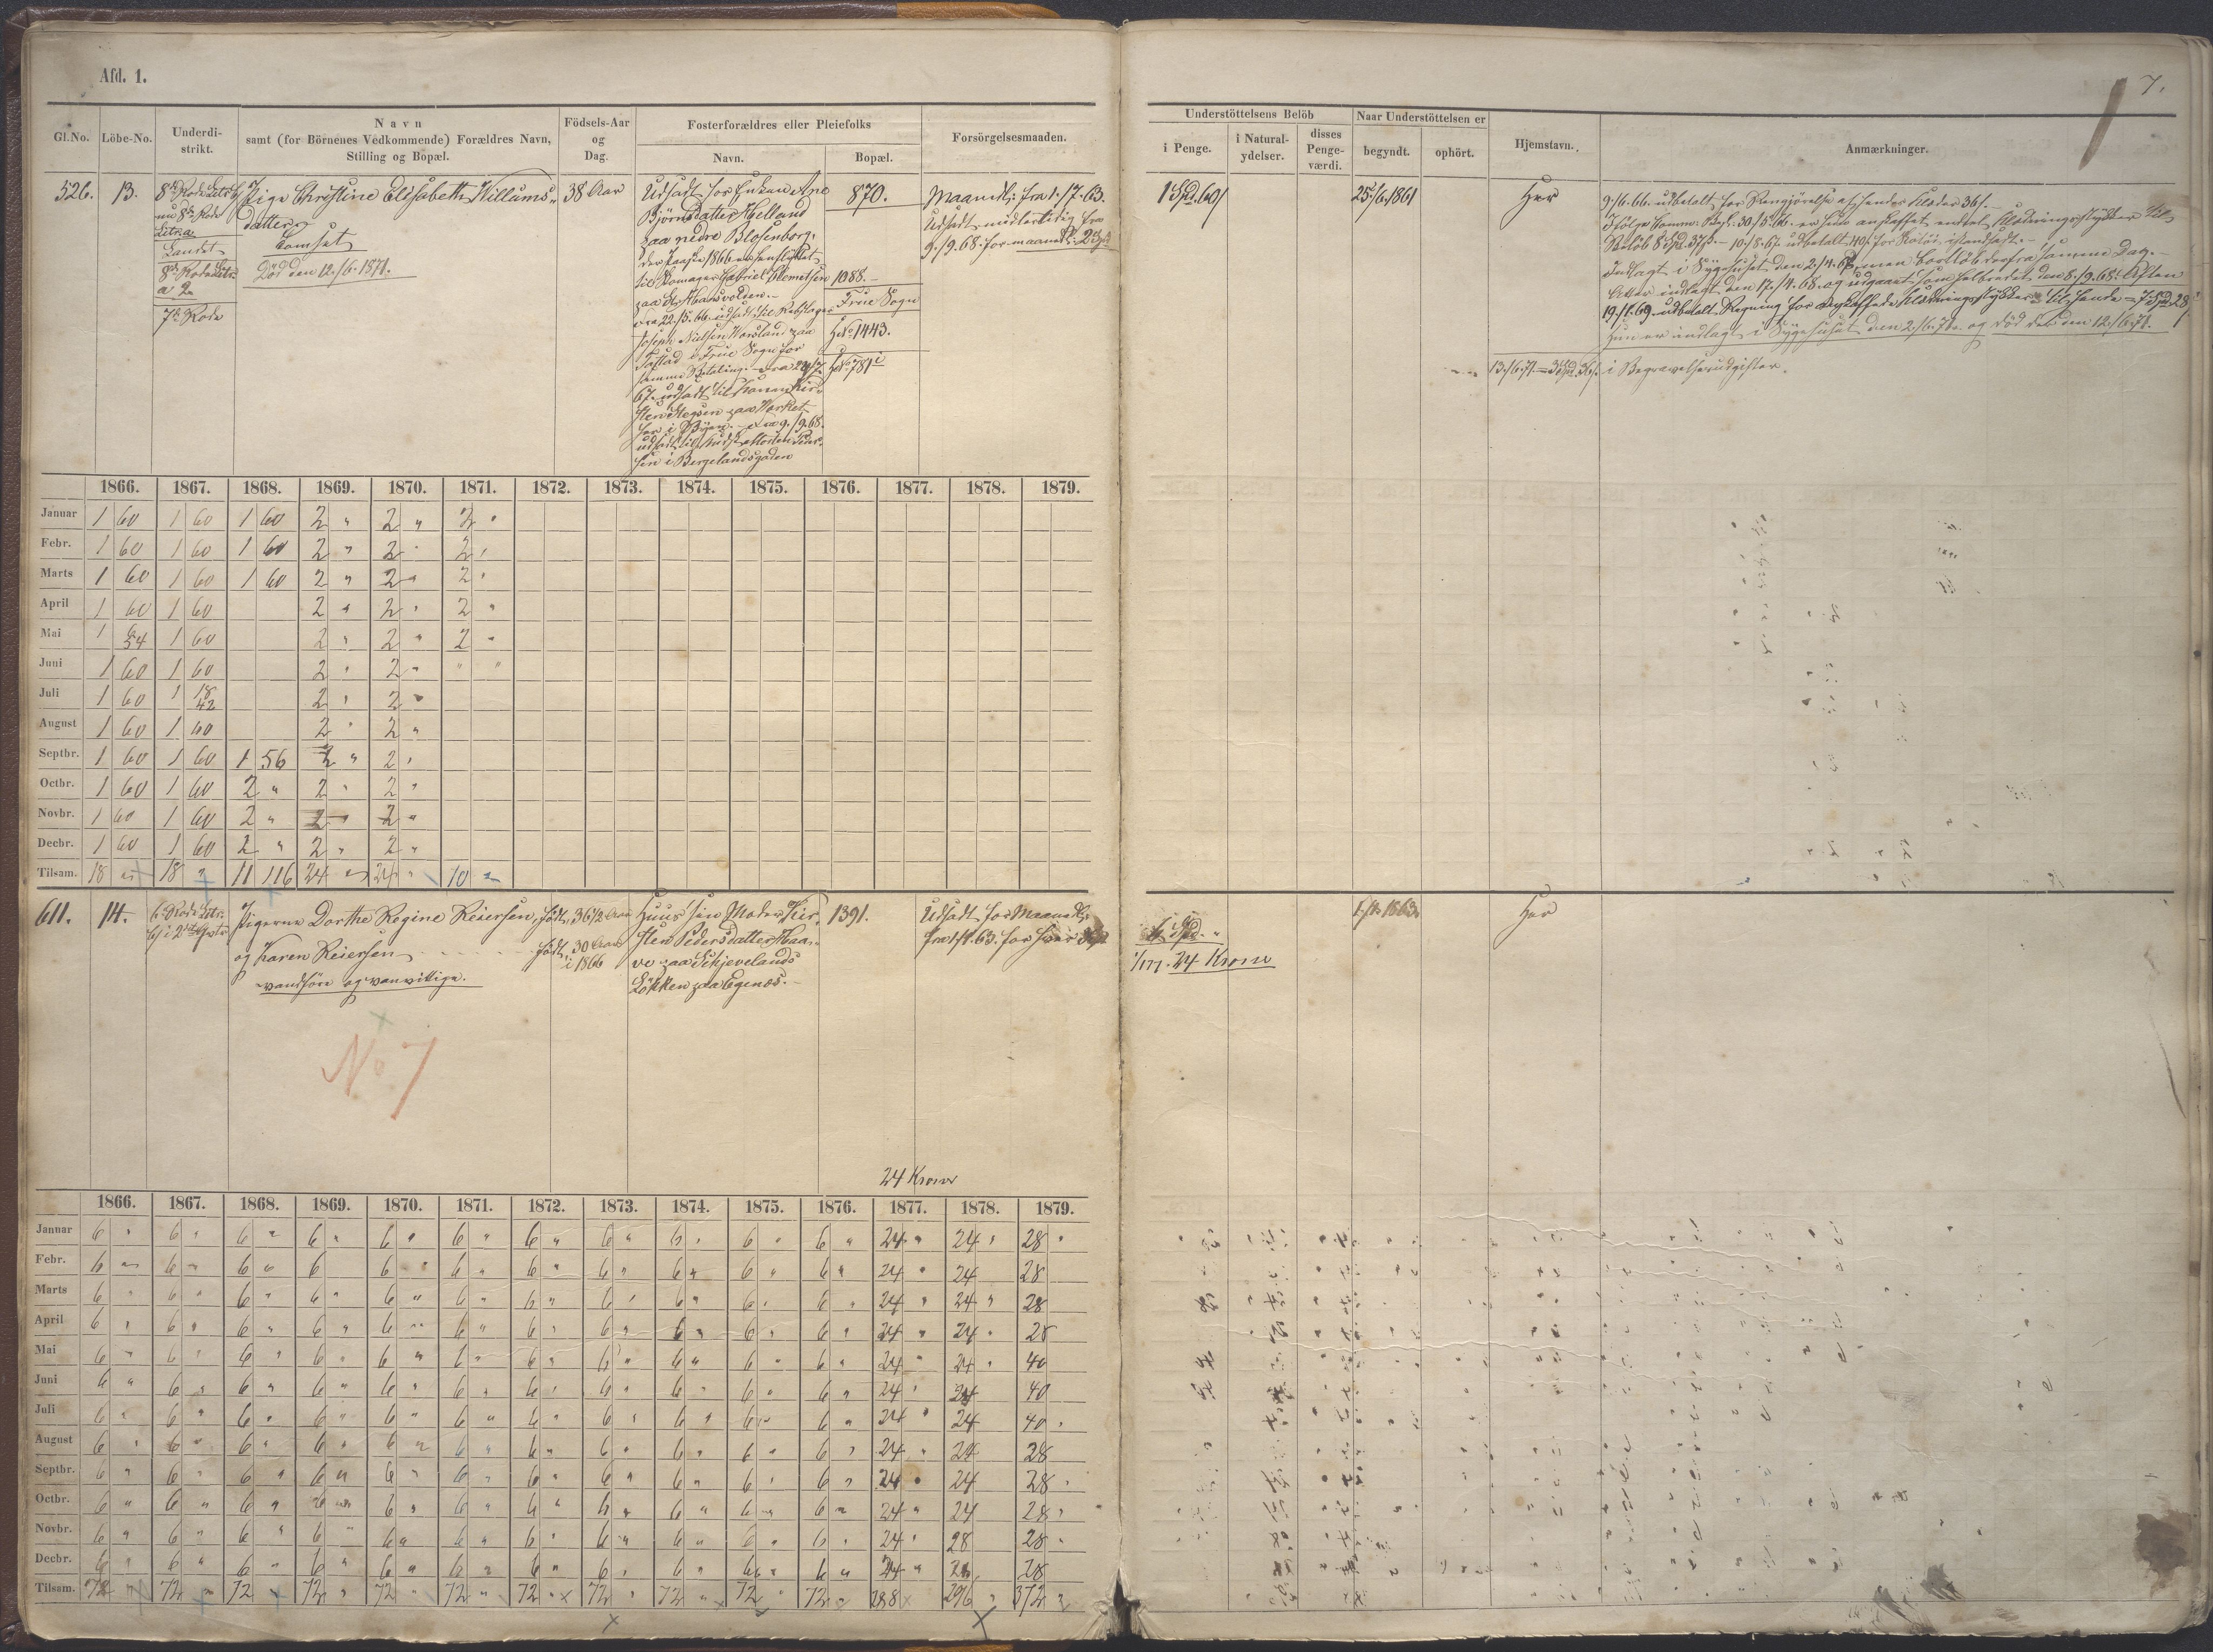 Afd. 1.
7.
Gl.No. Löbe-No. Underdi-strikt. Navn samt (for Börnenes Vedkommende) Forældres Navn, Stilling og Bopæl. Födsels-Aar og Dag. Fosterforældres eller Pleiefolks Navn. Bopæl. Forsörgelsesmaaden.
Understöttelsens Belöb i Penge. i Natural-ydelser. disses Penge-værdi. Naar Understöttelsen er begyndt. ophört. Hjemstavn. Anmærkninger.
526. 13.
8de Rode
nu 8de Rode
Litr. a
Landet
8de Rode Litr.
a 2
7de Rode
Pige Christine Elisabeth Willums-
datter
Tomsat
Död den 12./6.1871.
38 Aar
Udsadt hos Enkan Ane
Björnsdatter Helland
paa nedre Blosenborg.
til Skomager Gabriel Clemetsen
paa St. Hansvolden.
fra 22./5.66. udsadt til Rebslager
Joseph Nielsen
Tastad i Frue Sogn for
samme Betaling.
67. udsadt til Konen Kir-
sten
her i Byen. fra 9./9.68.
udsadt til
sen i Bergelandsgaden
870.
1088.
Frue Sogn
1443.
781
Maanedl: fra 1./7.63.
Udsadt midlertidig fra
9./9.68. for maanedl: 2 Spd
1 Spd. 60/
25./6.1861
Her
9./6.66. udbetalt for Rengjörelse af hendes Klæder 36/.
Ifölge Komm. Besl: 30./5.66. er hun anskaffet endeel Klædningsstykker til
Belöb 8 Spd. 37/. 10./8.67. udbetalt 40/ for
Indlagt i Sygehuset den 2./4. men bortlöb derfra samme Dag.
Atter indlagt den 17./4.68. og udgaaet som helbredet den 8./9.68. Aften
19./1.69. udbetalt Regning for anskaffede Klædningsstykker til hende = 7 Spd. 28/
Hun er indlagt i Sygehuset den 2./6.71. og död der den 12./6.71.
13./6.71. = 3 Spd. i Begravelsesudgifter.
1866. 1867. 1868. 1869. 1870. 1871. 1872. 1873. 1874. 1875. 1876. 1877. 1878. 1879.
Januar 1 60 1 60 1 60 2 " 2 " 2 "
Febr. 1 60 1 60 1 60 2 " 2 " 2 "
Marts 1 60 1 60 1 60 2 " 2 " 2 "
April 1 60 1 60 2 " 2 " 2 "
Mai 1 6 54 1 60 2 " 2 " 2 "
Juni 1 60 1 60 2 " 2 " " "
Juli 1 60 1 18 42 2 " 2 "
August 1 60 1 60 2 " 2 "
Septbr. 1 60 1 60 1 56 2 " 2 "
Octbr. 1 60 1 60 2 " 2 " 2 "
Novbr. 1 60 1 60 2 " 2 " 2 "
Decbr. 1 60 1 60 2 " 2 " 2 "
Tilsam. 18 " 18 " 11 116 24 " 24 " 10 "
611. 14.
6. Rode Litr.
Pigerne Dorthe Regine Reiersen, født,
og Karen Reiersen født,
vandföre og vanvittige.
36 1/2 Aar
30 Aar
i 1866
Huus sin Moder Kir-
sten Pedersdatter Haa-
ve paa Schjevelands
Lökken paa Egenæs.
1391.
Udsadt for Maanedl:
fra 1./1.63. for hver
6 Spd. "
1/1 77. 24 Kroner
1./1. 1863.
Her
No 7
24 Kroner
1866. 1867. 1868. 1869. 1870. 1871. 1872. 1873. 1874. 1875. 1876. 1877. 1878. 1879.
Januar 6 " 6 " 6 " 6 " 6 " 6 " 6 " 6 " 6 " 6 " 6 " 24 " 24 " 28 "
Febr. 6 " 6 " 6 " 6 6 " 6 " 6 " 6 " 6 " 6 " 6 " 24 " 24 28
Marts 6 " 6 " 6 " 6 " 6 " 6 " 6 " 6 " 6 " 6 " 6 " 24 " 24 " 28
April 6 " 6 " 6 " 6 " 6 " 6 " 6 " 6 " 6 " 6 " 6 " 24 " 24 " 28
Mai 6 " 6 " 6 " 6 " 6 " 6 " 6 " 6 " 6 " 6 " 6 " 24 " 24 " 40
Juni 6 " 6 " 6 " 6 " 6 " 6 " 6 " 6 " 6 " 6 " 6 " 24 " 24 40
Juli 6 " 6 " 6 " 6 " 6 " 6 " 6 " 6 " 6 " 6 " 6 " 24 " 24 40 "
August 6 " 6 " 6 " 6 " 6 " 6 " 6 " 6 " 6 " 6 " 6 " 24 " 24 28
Septbr. 6 " 6 " 6 " 6 " 6 " 6 " 6 " 6 " 6 " 6 " 6 " 24 " 24 28 "
Octbr. 6 " 6 " 6 " 6 " 6 " 6 " 6 " 6 " 6 " 6 " 6 " 24 " 24 28 "
Novbr. 6 " 6 " 6 " 6 " 6 " 6 " 6 " 6 " 6 " 6 " 6 " 24 " 28 28 "
Decbr. 6 " 6 " 6 " 6 " 6 " 6 " 6 " 6 " 6 " 6 " 6 " 24 " 28 28
Tilsam. 72 " 72 " 72 " 72 " 72 " 72 " 72 " 72 " 72 " 72 " 72 " 288 296 " 372 "